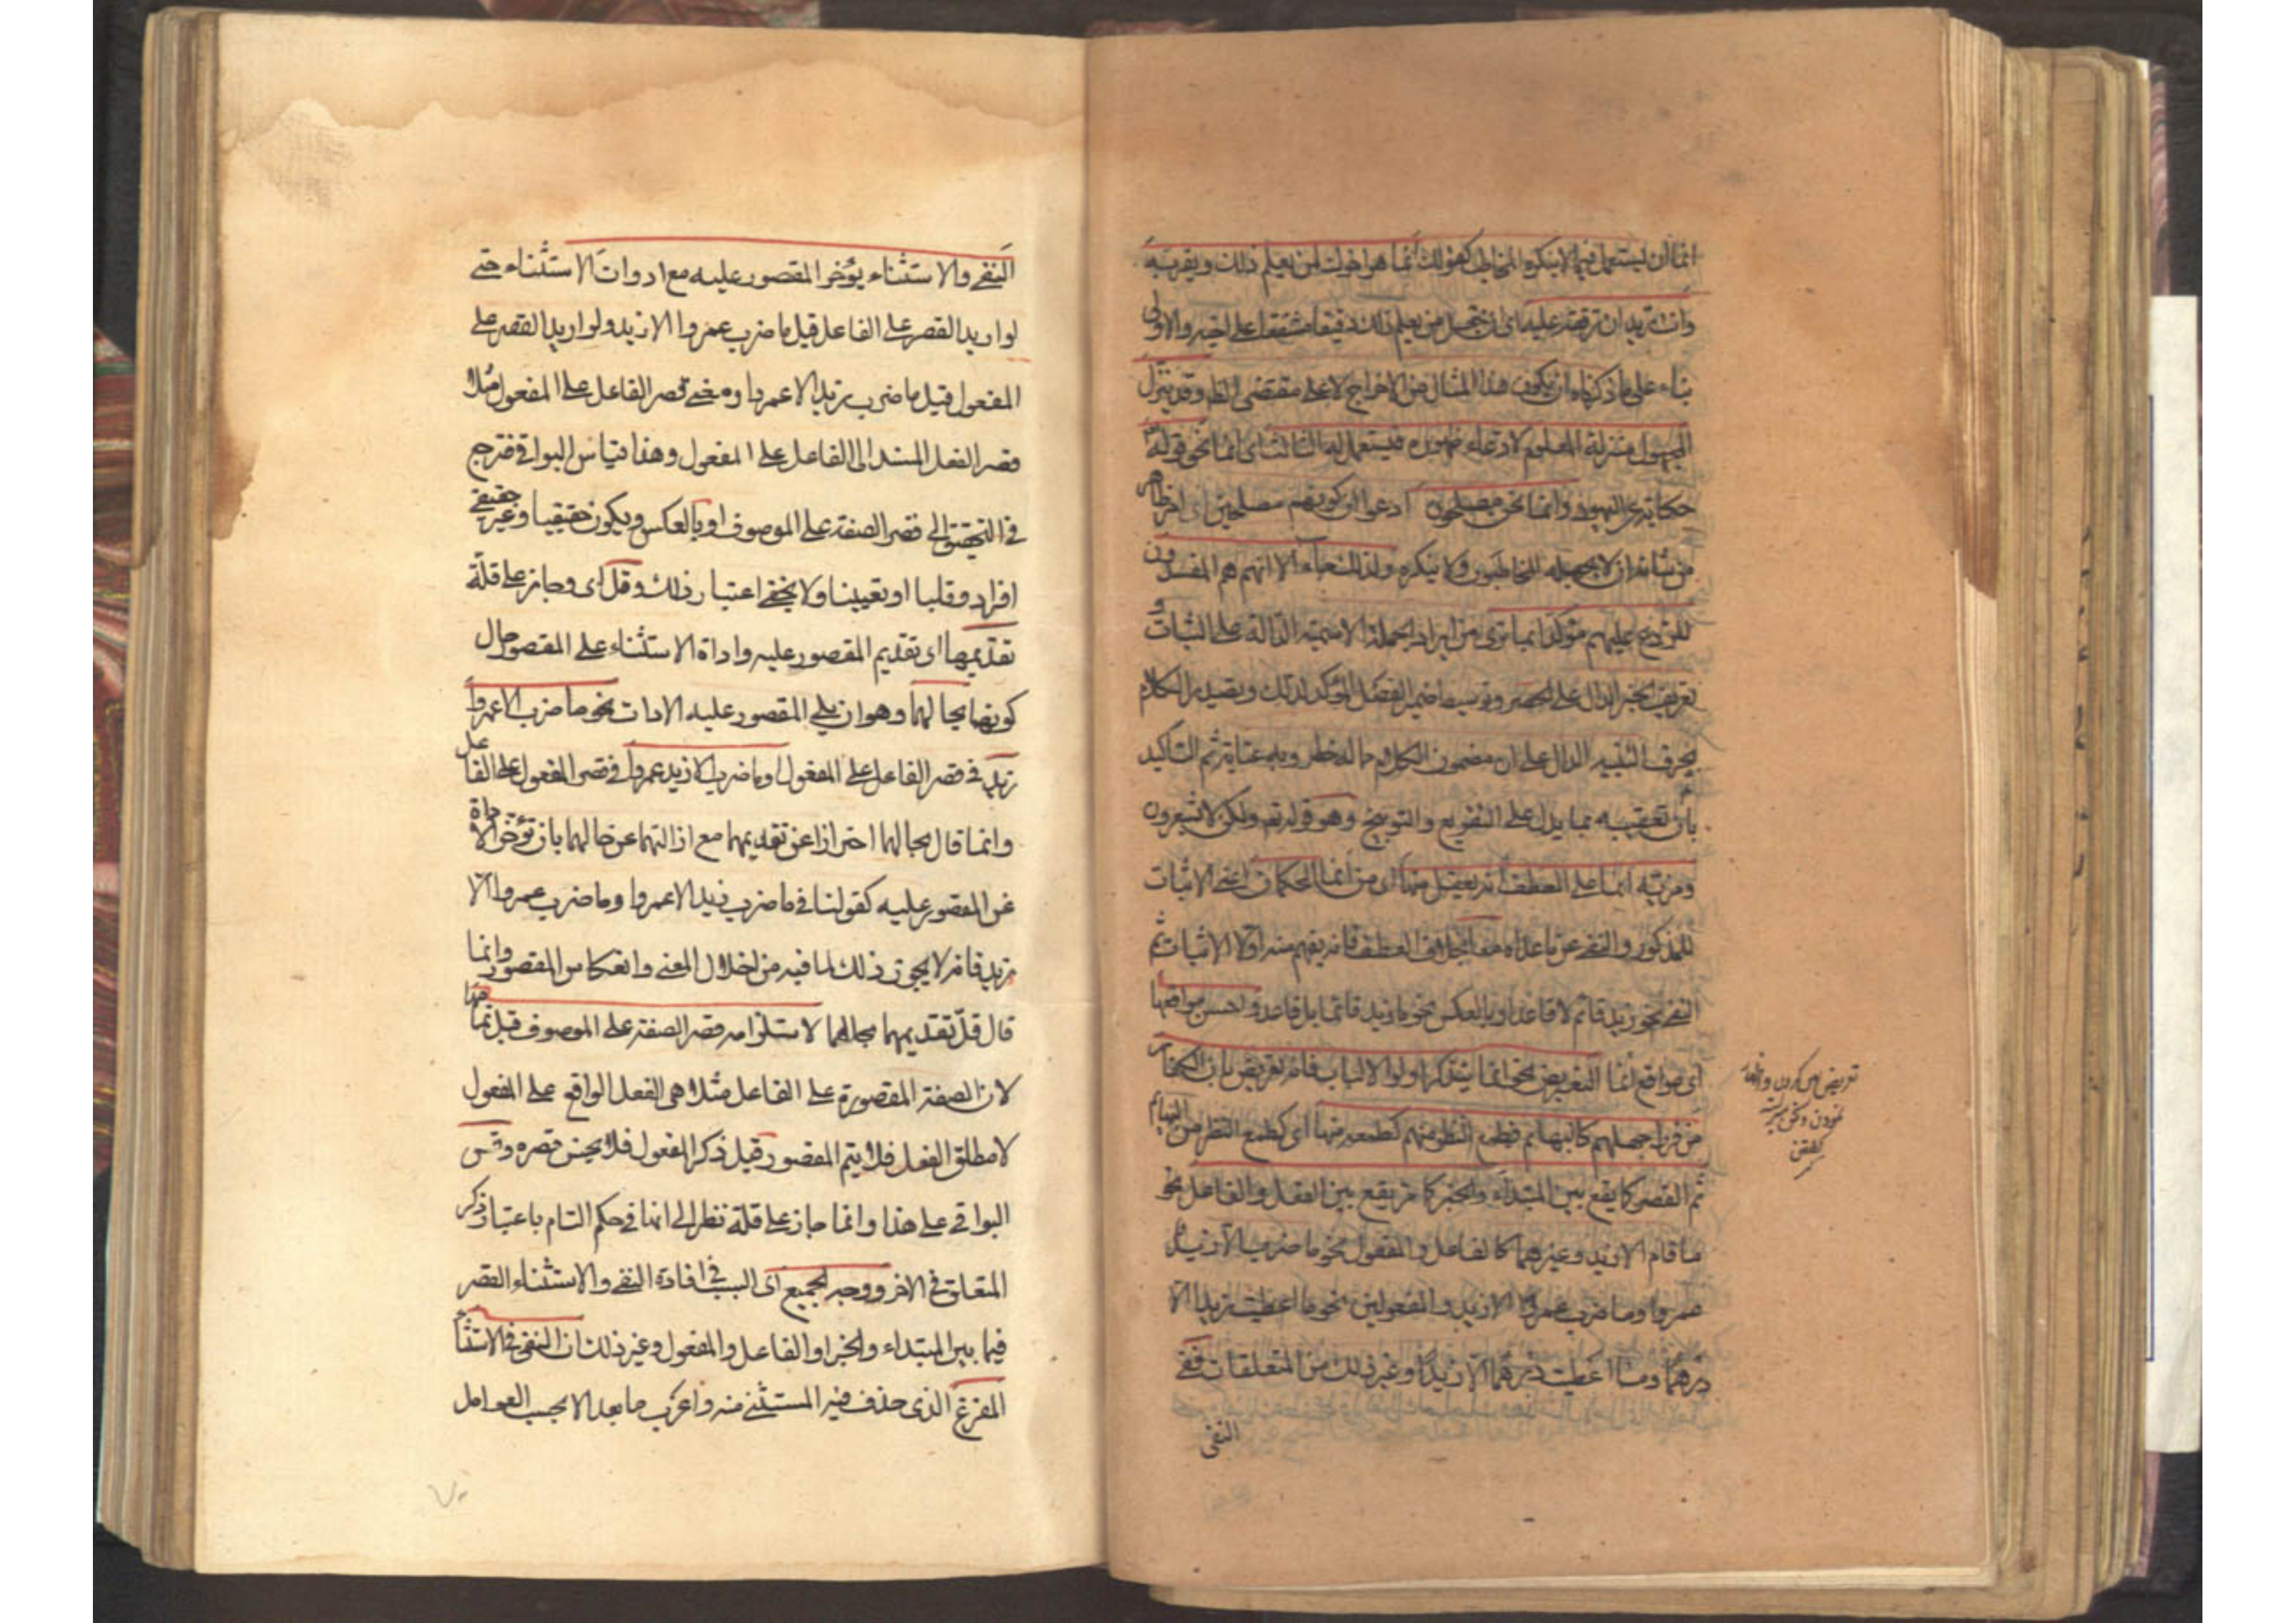 انما ان يستعمل فيما لا ينكره المخاطب كقولك انما هو اخوك لمن يعلم ذلك ويقر به
وانت تريد ان ترققه عليه اى ان تجعل من يعلم ذلك رقيقا مشفقا على اخيه والاولى
بناء على ما ذكرناه ان يكون هذا المثال من الاخراج لا على مقتضى الظ وقد ينزل
المجهول منزلة المعلوم لادعاء ظهوره فيستعمل له الثالث اى انما نحو قوله تع
حكاية عن اليهود وانما نحن مصلحون ادعوا ان كونهم مصلحين امر ظاهر
من شانه ان لا يجهله المخاطبون ولا ينكره ولذلك جاء الا انهم هم المفسدون
للرد عليهم مؤكدا بما ترى من ايراد الجملة الاسمية الدالة على الثبات و
تعريف الخبر الدال على الحصر وتوسيط ضمير الفصل المؤكد لذلك وتصدير الكلام
بحرف التنبيه الدال على ان مضمون الكلام مما له خطر وبه عناية ثم التاكيد
بان تعقيبه بما يدل على التقريع والتوبيخ وهو قوله تع ولكن لا تشعرون
ومزية انما على العطف انه يعقل منها اى من انما الحكمان اعنى الاثبات
للمذكور والنفى عما عداه معا بخلاف العطف فانه يفهم منه اولا الاثبات ثم
النفى نحو زيد قائم لا قاعد او بالعكس نحو ما زيد قائما بل قاعد واحسن مواقعها
اى مواقع انما التعريض نحو انما يتذكر اولوا الالباب فانه تعريض بان الكفار
من فرط جهلهم كالبهائم فطمع النظر منهم كطمعه منها اى كطمع النظر من البهائم
ثم القصر كما يقع بين المبتداء والخبر كما مر يقع بين الفعل والفاعل نحو
ما قام الا زيد وغيرهما كالفاعل والمفعول نحو ما ضرب الا زيد
عمروا وما ضرب عمروا الا زيد والمفعولين نحو ما اعطيت زيدا الا
درهما وما اعطيت درهما الا زيدا وغير ذلك من المتعلقات ففى
النفى
تعريض
نمودن
گفتن
النفى والاستثناء يؤخر المقصور عليه مع ادوات الاستثناء حتى
لو اريد القصر على الفاعل قيل ما ضرب عمروا الا زيد ولو اريد القصر على
المفعول قيل ما ضرب زيد الا عمروا ومعنى قصر الفاعل على المفعول مثلا
قصر الفعل المسند الى الفاعل على المفعول وهذا قياس البواقى فترجع
فى التحقيق الى قصر الصفة على الموصوف او بالعكس ويكون حقيقيا وغير حقيقى
افراد وقلبا او تعيينا ولا يخفى اعتبار ذلك وقل اى وجاز على قلة
تقديمها اى تقديم المقصور عليه واداة الاستثناء على المقصور حال
كونهما بحالهما وهو ان يلى المقصور عليه الادات نحو ما ضرب الا عمروا
زيد فى قصر الفاعل على المفعول وما ضرب الا زيد عمروا فى قصر المفعول على الفاعل
وانما قال بحالهما احترازا عن تقديمهما مع ازالتهما عن حالهما بان تؤخر الاداة
عن المقصور عليه كقولنا فى ما ضرب زيد الا عمروا وما ضرب عمروا الا
زيد فانه لا يجوز ذلك لما فيه من اختلال المعنى وانعكاس المقصور وانما
قال قل تقديمهما بحالهما لاستلزامه قصر الصفة على الموصوف قبل تمامها
لان الصفة المقصورة على الفاعل مثلا هى الفعل الواقع على المفعول
لا مطلق الفعل فلا يتم المقصور قبل ذكر المفعول فلا يحسن قصره وقس
البواقى على هذا وانما جاز على قلة نظرا الى انها فى حكم التام باعتبار ذكر
المتعلق فى الاخر ووجه الجميع اى السبب فى افادة النفى والاستثناء القصر
فيما بين المبتداء والخبر او الفاعل والمفعول وغير ذلك ان النفى فى الاستثناء
المفرغ الذى حذف فيه المستثنى منه واعرب ما بعد الا بحسب العوامل